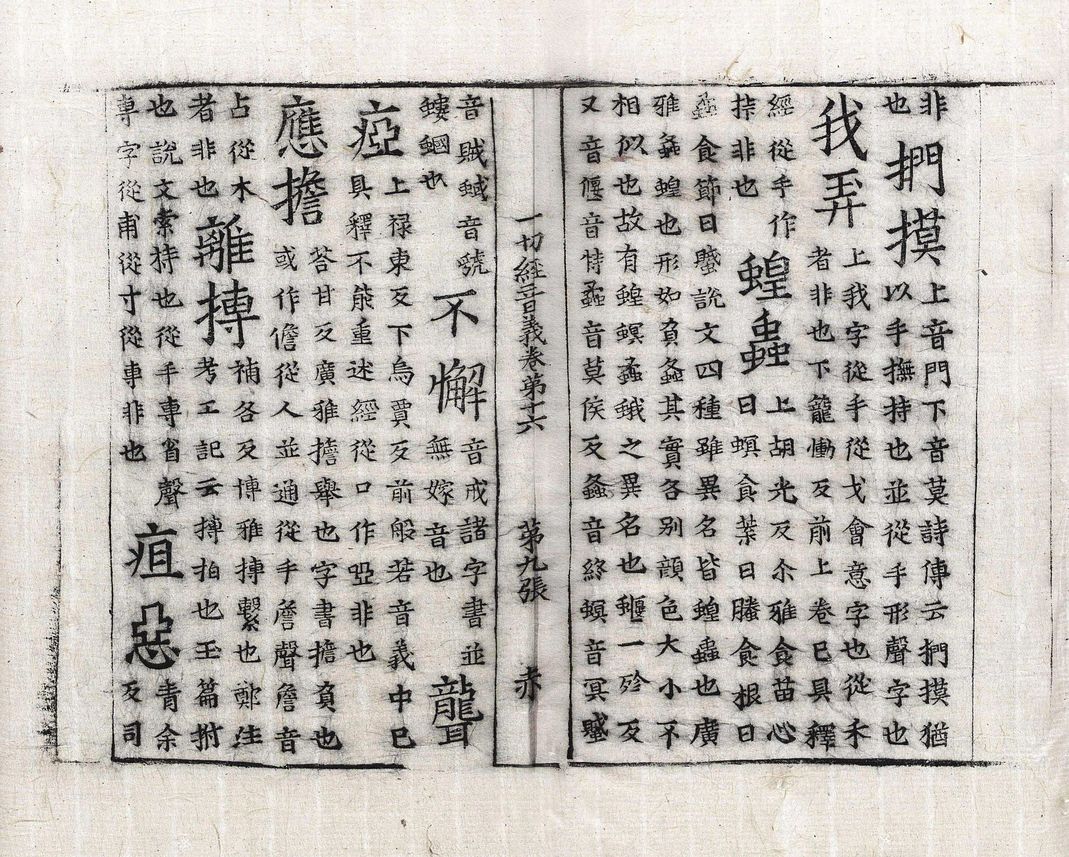 非
也
捫摸
上音門下音莫詩傳云捫摸猶
以手撫持也並從手形聲字也
我弄
上我字從手從戈會意字也從禾
者非也下籠慟反前上卷已具釋
經從手作
挊非也
蝗蟲
上胡光反尒雅食苗心
曰螟食葉曰螣食根曰
蟊食節曰蠈說文四種雖異名皆蝗蟲也廣
雅螽蝗也形如負螽其實各別顔色大小不
相似也故有蝗螟蟊蛾之異名也蝘一殄反
又音偃音恃蟊音莫侯反螽音終螟音冥蠈
一切經音義卷第十六 第九張 赤
音賊蜮音虢
螻蟈也
不懈
音戒諸字書並
無嫁音也
聾
瘂
上禄東反下烏賈反前般若音義中已
具釋不能重述經從口作啞非也
應擔
荅甘反廣雅擔舉也字書擔負也
或作儋從人並通從手詹聲詹音
占從木
者非也
離搏
補各反博雅搏擊也鄭注
考工記云搏拍也玉篇拊
也說文索持也從手尃省聲
尃字從甫從寸從專非也
疽惡
青余
反司